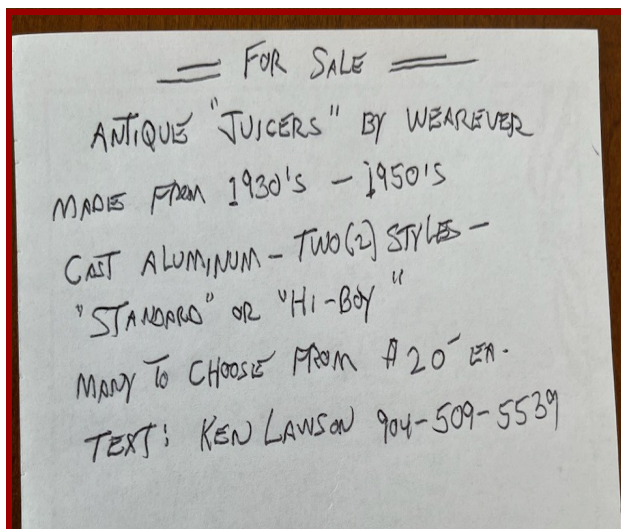 FOR SALE
ANTIQUE "JUICERS" BY WEAREVER
MADE FROM 1930'S - 1950'S
CAST ALUMINUM - TWO(2) STYLES -
"STANDARD" OR "HI-BOY"
MANY TO CHOOSE FROM $20 EA.
TEXT: KEN LAWSON 904-509-5539